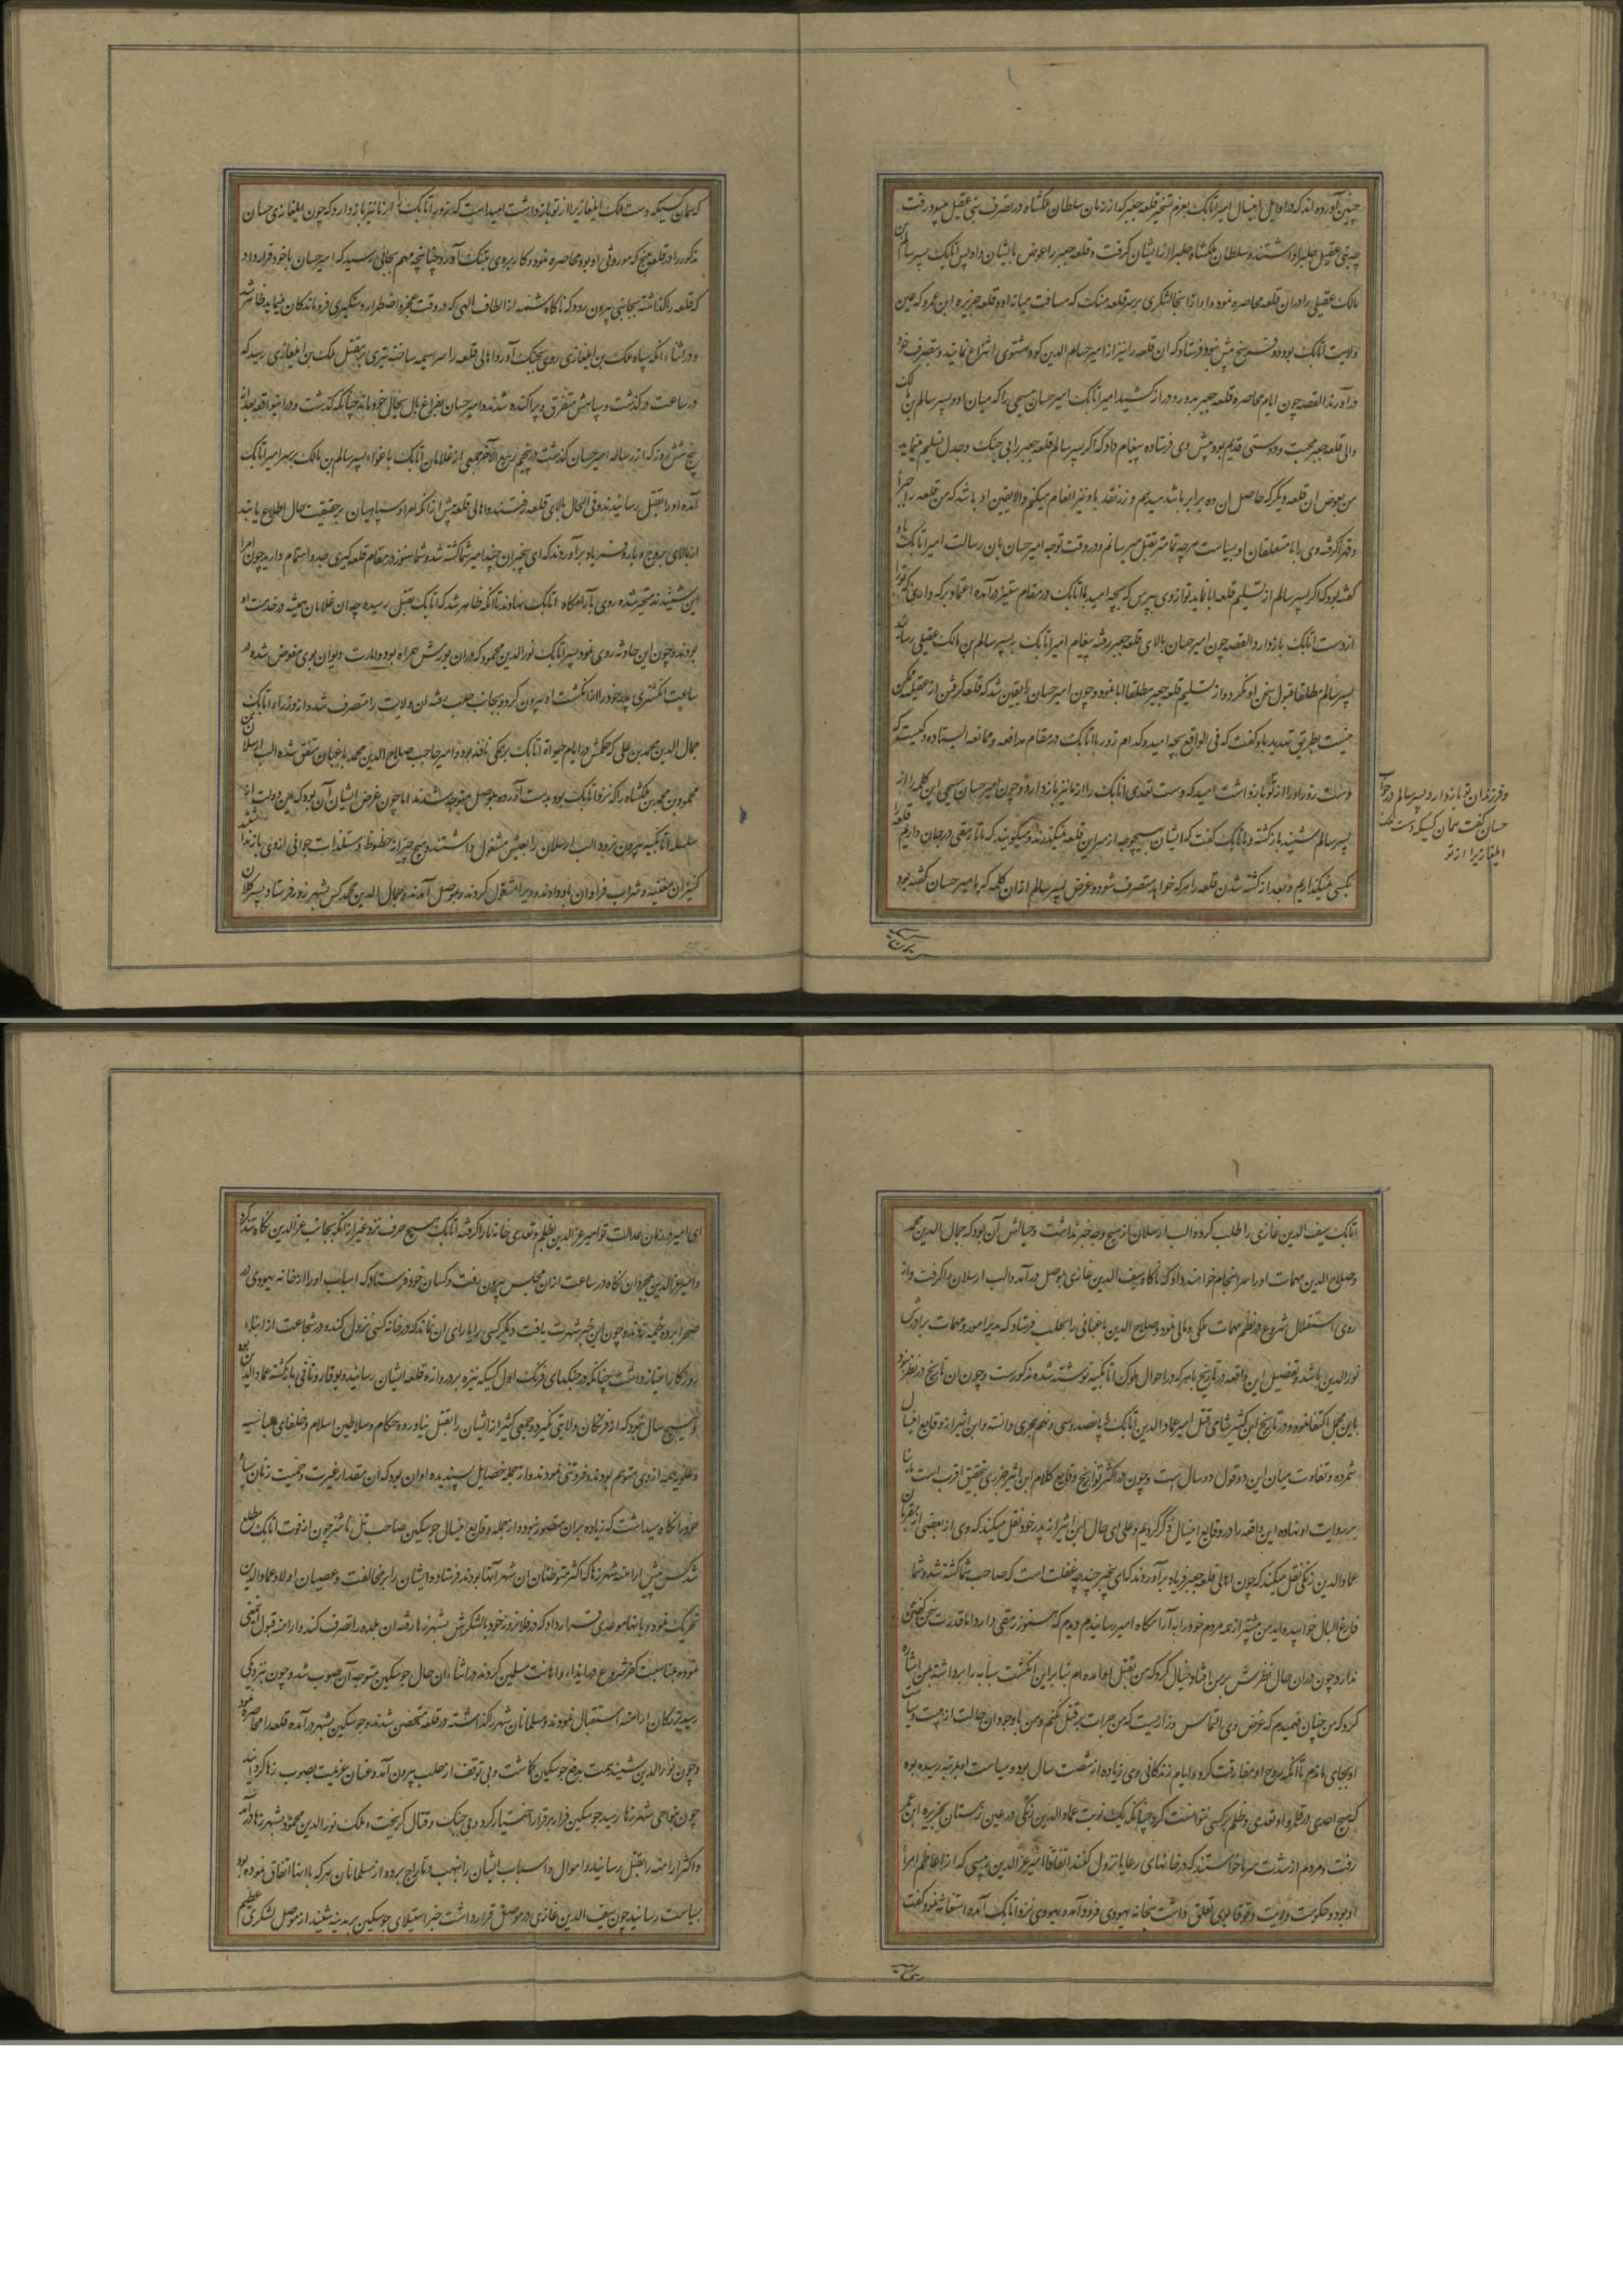 چنین آورده اند که در اوایل این سال امیر اتابک بعزم تسخیر قلعه جعبر که از زمان سلطان ملکشاه در تصرف بنی عقیل میبود رفت
چه بنی عقیل حلب را داشتند و سلطان ملکشاه حلب را از ایشان گرفت و قلعه جعبر را عوض بایشان داد پس اتابک پسر سالم بن
مالک عقیلی را در ان قلعه محاصره نمود و او از انجا لشکری بر سر قلعه فنک که مسافت میانه او و قلعه جزیره ابن عمرو که عین
ولایت اتابک بود دو فرسخ بیش نبود فرستاد که ان قلعه را نیز از امیر حسام الدین کرد بشنوی انتزاع نمایند و بتصرف خود
در آورند القصه چون ایام محاصره قلعه جعبر بدور و دراز کشید امیر اتابک امیر حسان منبجی را که میان او و پسر سالم بن مالک
والی قلعه جعبر محبت و دوستی قدیم بود پیش وی فرستاده پیغام داد که اگر پسر سالم قلعه جعبر را بی جنک و جدل تسلیم مینماید
من بعوض ان قلعه دیگر که حاصل ان ده برابر باشد میدهم و زر نقد باو نیز انعام میکنم والا یقین او باشد که من قلعه را جبرا
و قهرا گرفته وی را با متعلقان او بسیاست هر چه تمامتر بقتل میرسانم و در وقت توجه امیر حسان بان رسالت امیر اتابک باو
گفته بود که اگر پسر سالم از تسلیم قلعه ابا نماید تو از وی بپرس که بچه امید با اتابک در مقام ستیز در آمده اعتماد بر که داری که ترا
از دست اتابک باز دارد القصه چون امیر حسان بالای قلعه جعبر رفته پیغام امیر اتابک به پسر سالم بن مالک عقیلی رسانید
پسر سالم مطلقا قبول سخن او نکرد و از تسلیم قلعه جعبر مطلقا ابا نمود و چون امیر حسان را یقین شد که قلعه گرفتن از عقیلی ممکن
نیست بطریق تهدید باو گفت که فی الواقع بچه امید و کدام زور با اتابک در مقام مدافعه و ممانعه ایستاده و کیست که
دست زور او را از تو باز داشت امید که دست تعدی اتابک را از ما نیز باز دارد و چون امیر حسان منبجی این کلمه را از
پسر سالم شنید بازگشته و باتابک گفت که ایشان بهیچوجه از سر این قلعه نمیگذرند و میگویند که تا رمقی در جان داریم قلعه را
بکسی نمیگذاریم و بعد از کشته شدن قلعه را هر که خواهد متصرف شود و غرض پسر سالم از ان کلمه که با امیر حسان گفته بود
و فرزندان تو باز دارد پسر سالم در جواب
حسان گفت همان کسیکه دست ملک
ایلغازیرا از تو
که همان کسیکه دست ملک ایلغازیرا از تو باز داشت امید است که زور اتابک را از ما نیز باز دارد که چون ایلغازی حسان
مذکور را در قلعه منبج که موروثی او بود محاصره نمود و کار بر وی بتنک آورد چنانچه مهم بجائی رسید که امیر حسان با خود قرار داد
که قلعه را گذاشته بجانبی بیرون رود که ناگاه شمه از الطاف الهی که در وقت عجز و اضطرار دستگیری فروماندگان مینماید ظاهر شد
و در اثناء انکه سپاه ملک بن ایلغازی روی بجنک آورد و اهالی قلعه را سراسیمه ساخته تیری بر مقتل ملک بن ایلغازی رسید که
در ساعت در گذشت و سپاهش متفرق و پراکنده شدند و امیر حسان بفراغ بال بحال خود ماند چنانکه گذشت و در اینواقعه بعد از
پنج شش روز که از رساله امیر حسان گذشت در پنجم ربیع الآخر جمعی از غلامان اتابک باغواء پسر سالم بن مالک بر سر امیر اتابک
آمده او را بقتل رسانیدند و فی الحال بالای قلعه رفتند و اهالی قلعه پیش از انکه امرا و سپاهیان بر حقیقت حال اطلاع یابند
از بالای بروج و باره فریاد بر آوردند که ای بیخبران چند امیر شما کشته شد و شما هنوز در مقام قلعه گیری جد و اهتمام دارید چون امرا
این شنیدند متحیر شده روی بآرامگاه اتابک نهادند تا انکه ظاهر شد که اتابک بقتل رسیده چه ان غلامان همیشه در خدمت او
بودند و چون این حادثه روی نمود پسر اتابک نورالدین محمود که در ان یورش همراه بود و امارت دیوان بوی مفوض شده در
ساعت انگشتری پدر خود را از انگشت او بیرون کرد و بجانب حلب رفته ان ولایت را متصرف شد و از وزراء اتابک
جمال الدین محمد بن علی که حکمش در ایام حیوة اتابک بر همکی نافذ بود و امیر حاجب صلاح الدین محمد باغبان متفق شده الب ارسلان بن
محمود بن محمد بن ملکشاه را که نزد اتابک بود بدست آورده بموصل متوجه شدند اما چون غرض ایشان آن بود که این دولت از
سلسله اتابکیه بیرون نرود الب ارسلان را بعیش مشغول داشتند و هیچ چیز از حظوظ و مستلذات جوانی از وی باز نداشتند
کنیزان مغنیه و شراب فراوان باو دادند و ویرا مشغول کردند و بموصل آمدند و جمال الدین محمد کس بشهر زور فرستاد و پسر کلان
اتابک سیف الدین غازی را طلب کرد و الب ارسلان از هیچ وجه خبر نداشت و خیالش آن بود که جمال الدین محمد
و صلاح الدین مهمات او را سر انجام خواهند داد که ناگاه سیف الدین غازی بموصل در آمد و الب ارسلان را گرفت و از
روی استقلال شروع در نظم مهمات ملکی و مالی نمود و صلاح الدین باغبانی را بحلب فرستاد که مدبر امور و مهمات برادرش
نورالدین باشد و تفصیل این واقعه در تاریخ باهر که در احوال ملوک اتابکیه نوشته شده مذکورست و چون ان تاریخ در نظر نبود
باین مجمل اکتفا نمود و در تاریخ ابن کثیر شامی قتل امیر عماد الدین اتابک را پانصد و سی و نهم هجری دانسته و ابن اثیر از وقایع این سال
شمرده و تفاوت میان این دو قول دو سال است و چون در اکثر تواریخ وقایع کلام ابن اثیر جزری بتحقیق اقرب است بنا
بر روایت او نهاده این واقعه را در وقایع این سال ذکر کردیم و علی ای حال ابن اثیر از پدر خود نقل میکند که وی از بعضی از مقربان
عماد الدین زنگی نقل میکند که چون اهالی قلعه جعبر فریاد بر آوردند که ای بیخبر چند چه غفلت است که صاحب شما کشته شد و شما
فارغ البال خوابیده اید من پیشتر از همه مردم خود را به آرامگاه امیر رسانیدم دیدم که هنوز رمقی دارد اما قدرت سخن گفتن
ندارد چون در ان حال نظرش بر من افتاد خیال کرد که من بقتل او امده ام بنا براین انگشت سبابه را برداشته بمن اشاره
کرد که من چنان فهمیدم که غرض وی التماس و زاریست که من جرات بر قتل نکنم و من با وجود ان حالت از هیبت و سیاست
او بجای ماندم تا آنکه روح او مفارقت کرد و ایام زندگانی وی زیاده از شصت سال بود و سیاست او بمرتبه رسیده بود
که هیچ احدی در قلمرو او تعدی و ظلم بر کسی نتوانست کرد چنانکه یک نوبت عماد الدین زنگی در عین زمستان بجزیره ابن عمر
رفت و مردم از شدت سرما خواستند که در خانهای رعایا نزول کنند اتفاقا امیر عزالدین دبیسی که از اعاظم امراء
او بود و حکومت ولایت دقوقا بوی تعلق داشت بخانه یهودی فرود آمده یهودی نزد اتابک آمده استغاثه نمود و گفت
ای امیر در زمان عدالت تو امیر عزالدین بظلم و تعدی خانه ما را گرفته اتابک هیچ حرف نزد غیر از انکه بجانب عزالدین نگاه تند کرد
و امیر عزالدین بمجرد ان نگاه در ساعت از ان مجلس بیرون رفت و کسان خود فرستاد که اسباب او را از خانه یهودی در
صحرا برده خیمه زدند و چون این خبر شهرت یافت دیگر کسی را یارای ان نماند که در خانه کسی نزول کند و در شجاعت از ابناء
روزگار امتیاز داشت چنانکه در جنگهای فرنگ اول کسیکه نیزه بر دروازه قلعه ایشان رسانید و بوقار و تانی بازگشته عماد الدین بود
و هیچ سال نبود که از فرنگان ولایتی نگیرد و جمعی کثیر از ایشان را بقتل نیاورد و حکام و سلاطین اسلام و خلفای عباسیه
و علویه همه از وی متوهم بودند و فروتنی نمودند و از جمله خصایل پسندیده او ان بود که ان مقدار غیرت و حمیت زنان سپاه
خود را نگاه میداشت که زیاده بر ان متصور نبود و از جمله وقایع این سال جوسکین صاحب تل باشر چون از فوت اتابک مطلع
شد کس پیش ارامنه شهر رها که اکثر متوطنان ان شهر آنها بودند فرستاد و ایشان را بر مخالفت و عصیان اولاد عماد الدین
تحریک نمود و با انها موعدی قرار داد که در فلان روز خود با لشکرش بشهر رها رفته ان بلده را تصرف کند و ارامنه قبول این معنی
نموده بمناسبت کفر شروع در ایذاء و اهانت مسلمین کردند در اثناء ان حال جوسکین متوجه آن صوب شد و چون بنزدیکی
رسید ترکان ارامنه استقبال نمودند و مسلمانان شهر را گذاشته در قلعه متحصن شدند و جوسکین بشهر در آمده قلعه را محاصره نمود
و چون نورالدین شنید همت بدفع جوسکین گماشت و بی توقف از حلب بیرون آمد و عنان عزیمت بصوب رها گردانید
چون بنواحی شهر رها رسید جوسکین فرار بر قرار اختیار کرد و بی جنک و قتال گریخت و ملک نورالدین محمود بشهر رها در آمد
و اکثر ارامنه را بقتل رسانید و اموال و اسباب ایشان را بنهب و تاراج برده و از مسلمانان هر که با انها اتفاق نموده بود
بسیاست رسانید چون سیف الدین غازی در موصل قرار داشت خبر استیلای جوسکین بر مدینه شنید از موصل لشکری عظیم